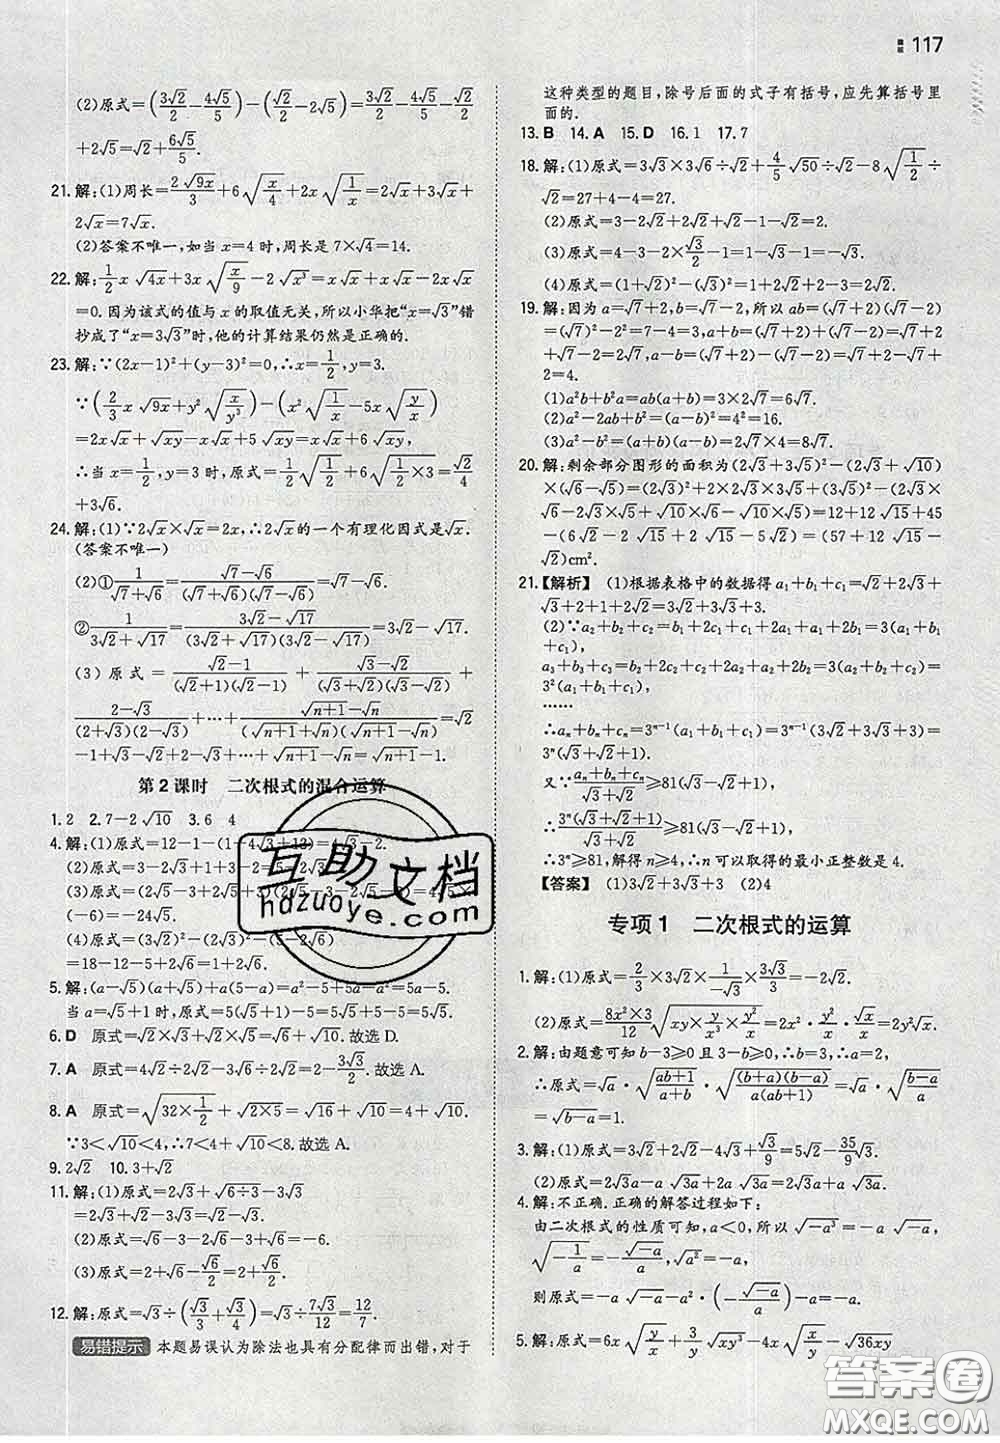 117
(2)原式=(3√2/2-4√5/5)-(√2/2-2√5)=3√2/2-4√5/5-√2/2
+2√5=√2+6√5/5.
21.解:(1)周长=2√9x/3+6√(x/4)+2x√(1/x)=2√x+3√x+
2√x=7√x.
(2)答案不唯一,如当x=4时,周长是7×√4=14.
22.解:1/2x√4x+3x√(x/9)-2√x³=x√x+x√x-2x√x
=0.因为该式的值与x的取值无关,所以小华把“x=√3”错
抄成了“x=3√3”时,他的计算结果仍然是正确的.
23.解:∵(2x-1)²+(y-3)²=0,∴x=1/2,y=3.
∵(2/3x√9x+y²√(x/y³))-(x²√(1/x)-5x√(y/x))
=2x√x+√xy-x√x+5√xy=x√x+6√xy.
∴当x=1/2,y=3时,原式=1/2√(1/2)+6√(1/2×3)=√2/4
+3√6.
24.解:(1)∵2√x×√x=2x,∴2√x的一个有理化因式是√x.
(答案不唯一)
(2)①1/(√7+√6)=(√7-√6)/((√7+√6)(√7-√6))=√7-√6.
②1/(3√2+√17)=(3√2-√17)/((3√2+√17)(3√2-√17))=3√2-√17.
(3)原式=(√2-1)/((√2+1)(√2-1))+(√3-√2)/((√3+√2)(√3-√2))+
(2-√3)/((2+√3)(2-√3))+…+(√(n+1)-√n)/((√(n+1)+√n)(√(n+1)-√n))=√2
-1+√3-√2+2-√3+…+√(n+1)-√n=√(n+1)-1.
第2课时 二次根式的混合运算
1.2 2.7-2√10 3.6 4
4.解:(1)原式=12-1-(1-4√3+12)=4√3-2.
(3)原式=
(-6)=-24√15.
(4)原式=
=18-12-5+2√6-1=2√6.
5.解:(a-√5)(a+√5)+a(5-a)=a²-5+5a-a²=5a-5.
当a=√5+1时,原式=5(√5+1)-5=5√5+5-5=5√5.
6.D 原式=√2×√3+√2×√5=√6+√10.故选D.
7.A 原式=4√2÷2√2-3√6÷2√2=2-3√3/2.故选A.
8.A 原式=√(32×1/2)+√(2×5)=√16+√10=4+√10.
∵3<√10<4,∴7<4+√10<8.故选A.
9.2√2 10.3+√2
11.解:(1)原式=2√3+√(6÷3)-3√3
=2√3+√2-3√3=√2-√3.
(2)原式=√6-3-2√6-3+√6=-6.
(3)原式=2+√6-√6/2=2+√6/2.
12.解:原式=√3÷(√3/3+√3/4)=√3÷7√3/12=12/7.
易错提示 本题易误认为除法也具有分配律而出错,对于
这种类型的题目,除号后面的式子有括号,应先算括号里
面的.
13.B 14.A 15.D 16.1 17.7
18.解:(1)原式=3√3×3√6÷√2+4/5√50÷√2-8√(1/2)÷
√2=27+4-4=27.
(2)原式=3-2√2+√2+√2-1-√2=2.
(3)原式=4-3-2×√3/2-1=-√3.
(4)原式=(1+√2)²-(√3)²=1+2√2+2-3=2√2.
19.解:因为a=√7+2,b=√7-2,所以ab=(√7+2)(√7-2)
=(√7)²-2²=7-4=3,a+b=(√7+2)+(√7-2)=√7+2
+√7-2=2√7,a-b=(√7+2)-(√7-2)=√7+2-√7+
2=4.
(1)a²b+b²a=ab(a+b)=3×2√7=6√7.
(2)a²-2ab+b²=(a-b)²=4²=16.
(3)a²-b²=(a+b)(a-b)=2√7×4=8√7.
20.解:剩余部分图形的面积为(2√3+3√5)²-(2√3+√10)
×(√6-√5)=(2√3)²+2×2√3×3√5+(3√5)²-(2√3×
√6-2√3×√5+√10×√6-√10×√5)=12+12√15+45
-(6√2-2√15+2√15-5√2)=(57+12√15-
√2)cm².
21.【解析】 (1)根据表格中的数据得a₁+b₁+c₁=√2+2√3+
√3+2+1+2√2=3√2+3√3+3.
(2)∵a₂+b₂+c₂=b₁+2c₁+c₁+2a₁+a₁+2b₁=3(a₁+b₁
+c₁),
a₃+b₃+c₃=b₂+2c₂+c₂+2a₂+a₂+2b₂=3(a₂+b₂+c₂)=
3²(a₁+b₁+c₁),
……
∴aₙ+bₙ+cₙ=3ⁿ⁻¹(a₁+b₁+c₁)=3ⁿ⁻¹(3√2+3√3+3)=
3ⁿ(√2+√3+1).
又∵(aₙ+bₙ+cₙ)/(√3+√2)≥81(√3-√2+1),
∴3ⁿ(√2+√3+1)/(√3+√2)≥81(√3-√2+1),
∴3ⁿ≥81,解得n≥4,∴n可以取得的最小正整数是4.
【答案】 (1)3√2+3√3+3 (2)4
专项1 二次根式的运算
1.解:(1)原式=2/3×3√2×1/(-√3)×3√3/3=-2√2.
(2)原式=(8x²×3)/12√(xy×y/x³×y²/x²)=2x²·y/x·y/x√x=2y²√x.
2.解:由题意可知b-3≥0且3-b≥0,∴b=3,∴a=2,
∴原式=√a·√((ab+1)/(a+b))·√((b+a)(b-a)/(a(ab+1)))=√a·√((b-a)/a)=
√(b-a)=1.
3.解:(1)原式=3√2+2√2-4√3+√3/9=5√2-35/9√3.
(2)原式=2√3a-a√3a+2√3a=4√3a-a√3a.
4.解:不正确.正确的解答过程如下:
由二次根式的性质可知,a<0,所以√(-a³)=-a√(-a),
√(-1/a)=-√(-a)/a,√a²=-a,
则原式=-a√(-a)-a²·(-√(-a)/a)-a=-a.
5.解:原式=6x√(y/x)+3/y√(xy³)-4x√(x/y)-√36xy
互助文档
hdzuoye.com
答案圈
MXQE.COM